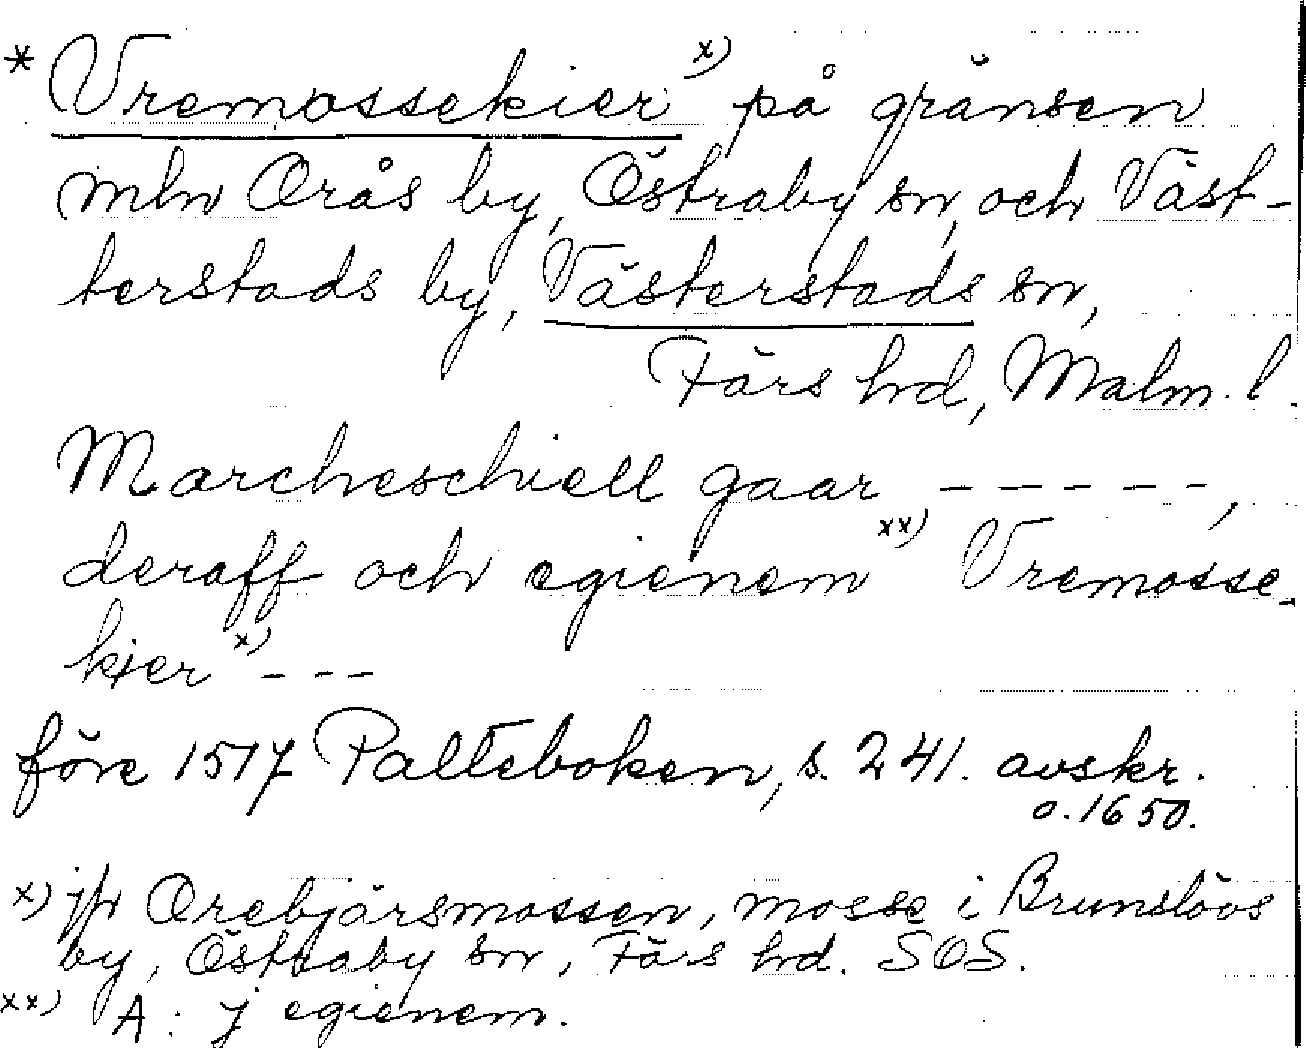 * Vremossekier x) på gränsen
mln Orås by, Östraby sn, och Väst-
terstads by, Västerstads sn,
Färs hrd, Malm. l.
Marcheschiell gaar - - - - -,
deraff och egienem xx) Vremosse-
kier x) - - -
före 1517 Palteboken, s. 241. avskr.
o. 1650.
x) jfr Orebjärsmossen, mosse i Brunslövs
by, Östraby sn, Färs hrd. SOS.
xx) A: J egienem.